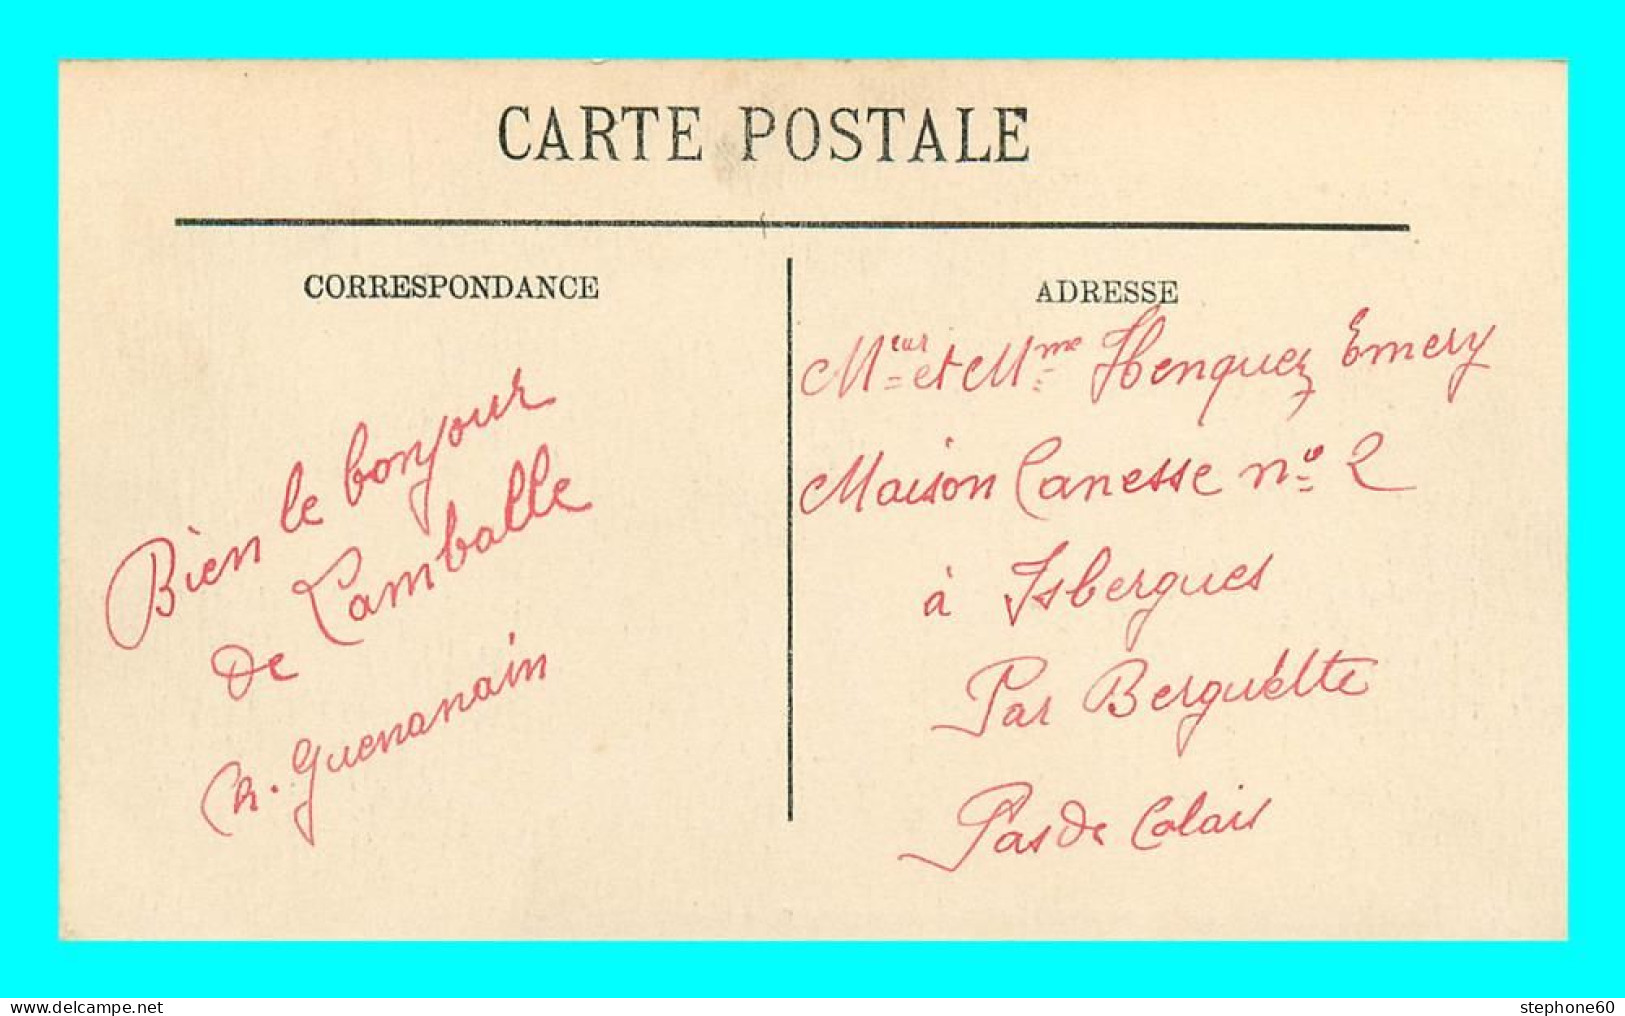 CARTE POSTALE
CORRESPONDANCE
Bien le bonjour
de Lamballe
R. Guenanain
ADRESSE
Mʳ et Mᵐᵉ Henquez Emery
Maison Canesse nº 2
à Isbergues
Par Berguètte
Pas de Calais
www.delcampe.net
stephone60